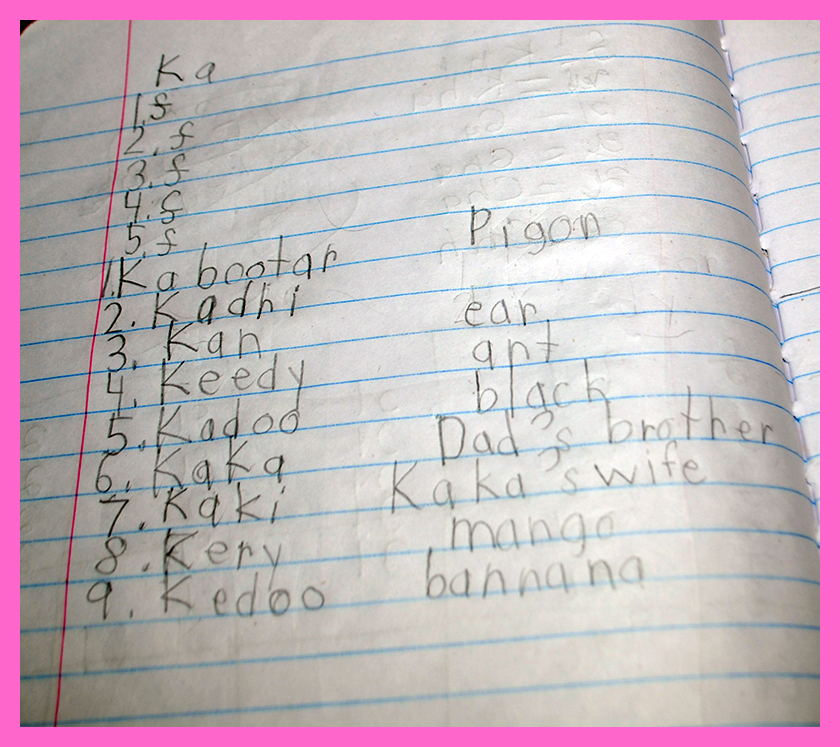 Ka
1 f
2. f
3. f
4. f
5. f
1. Kabootar Pigon
2. Kadhi
3. Kan ear
4. Keedy ant
5. Kadoo black
6. Kaka Dad's brother
7. Kaki Kaka's wife
8. Kery mango
9. Kedoo bannana